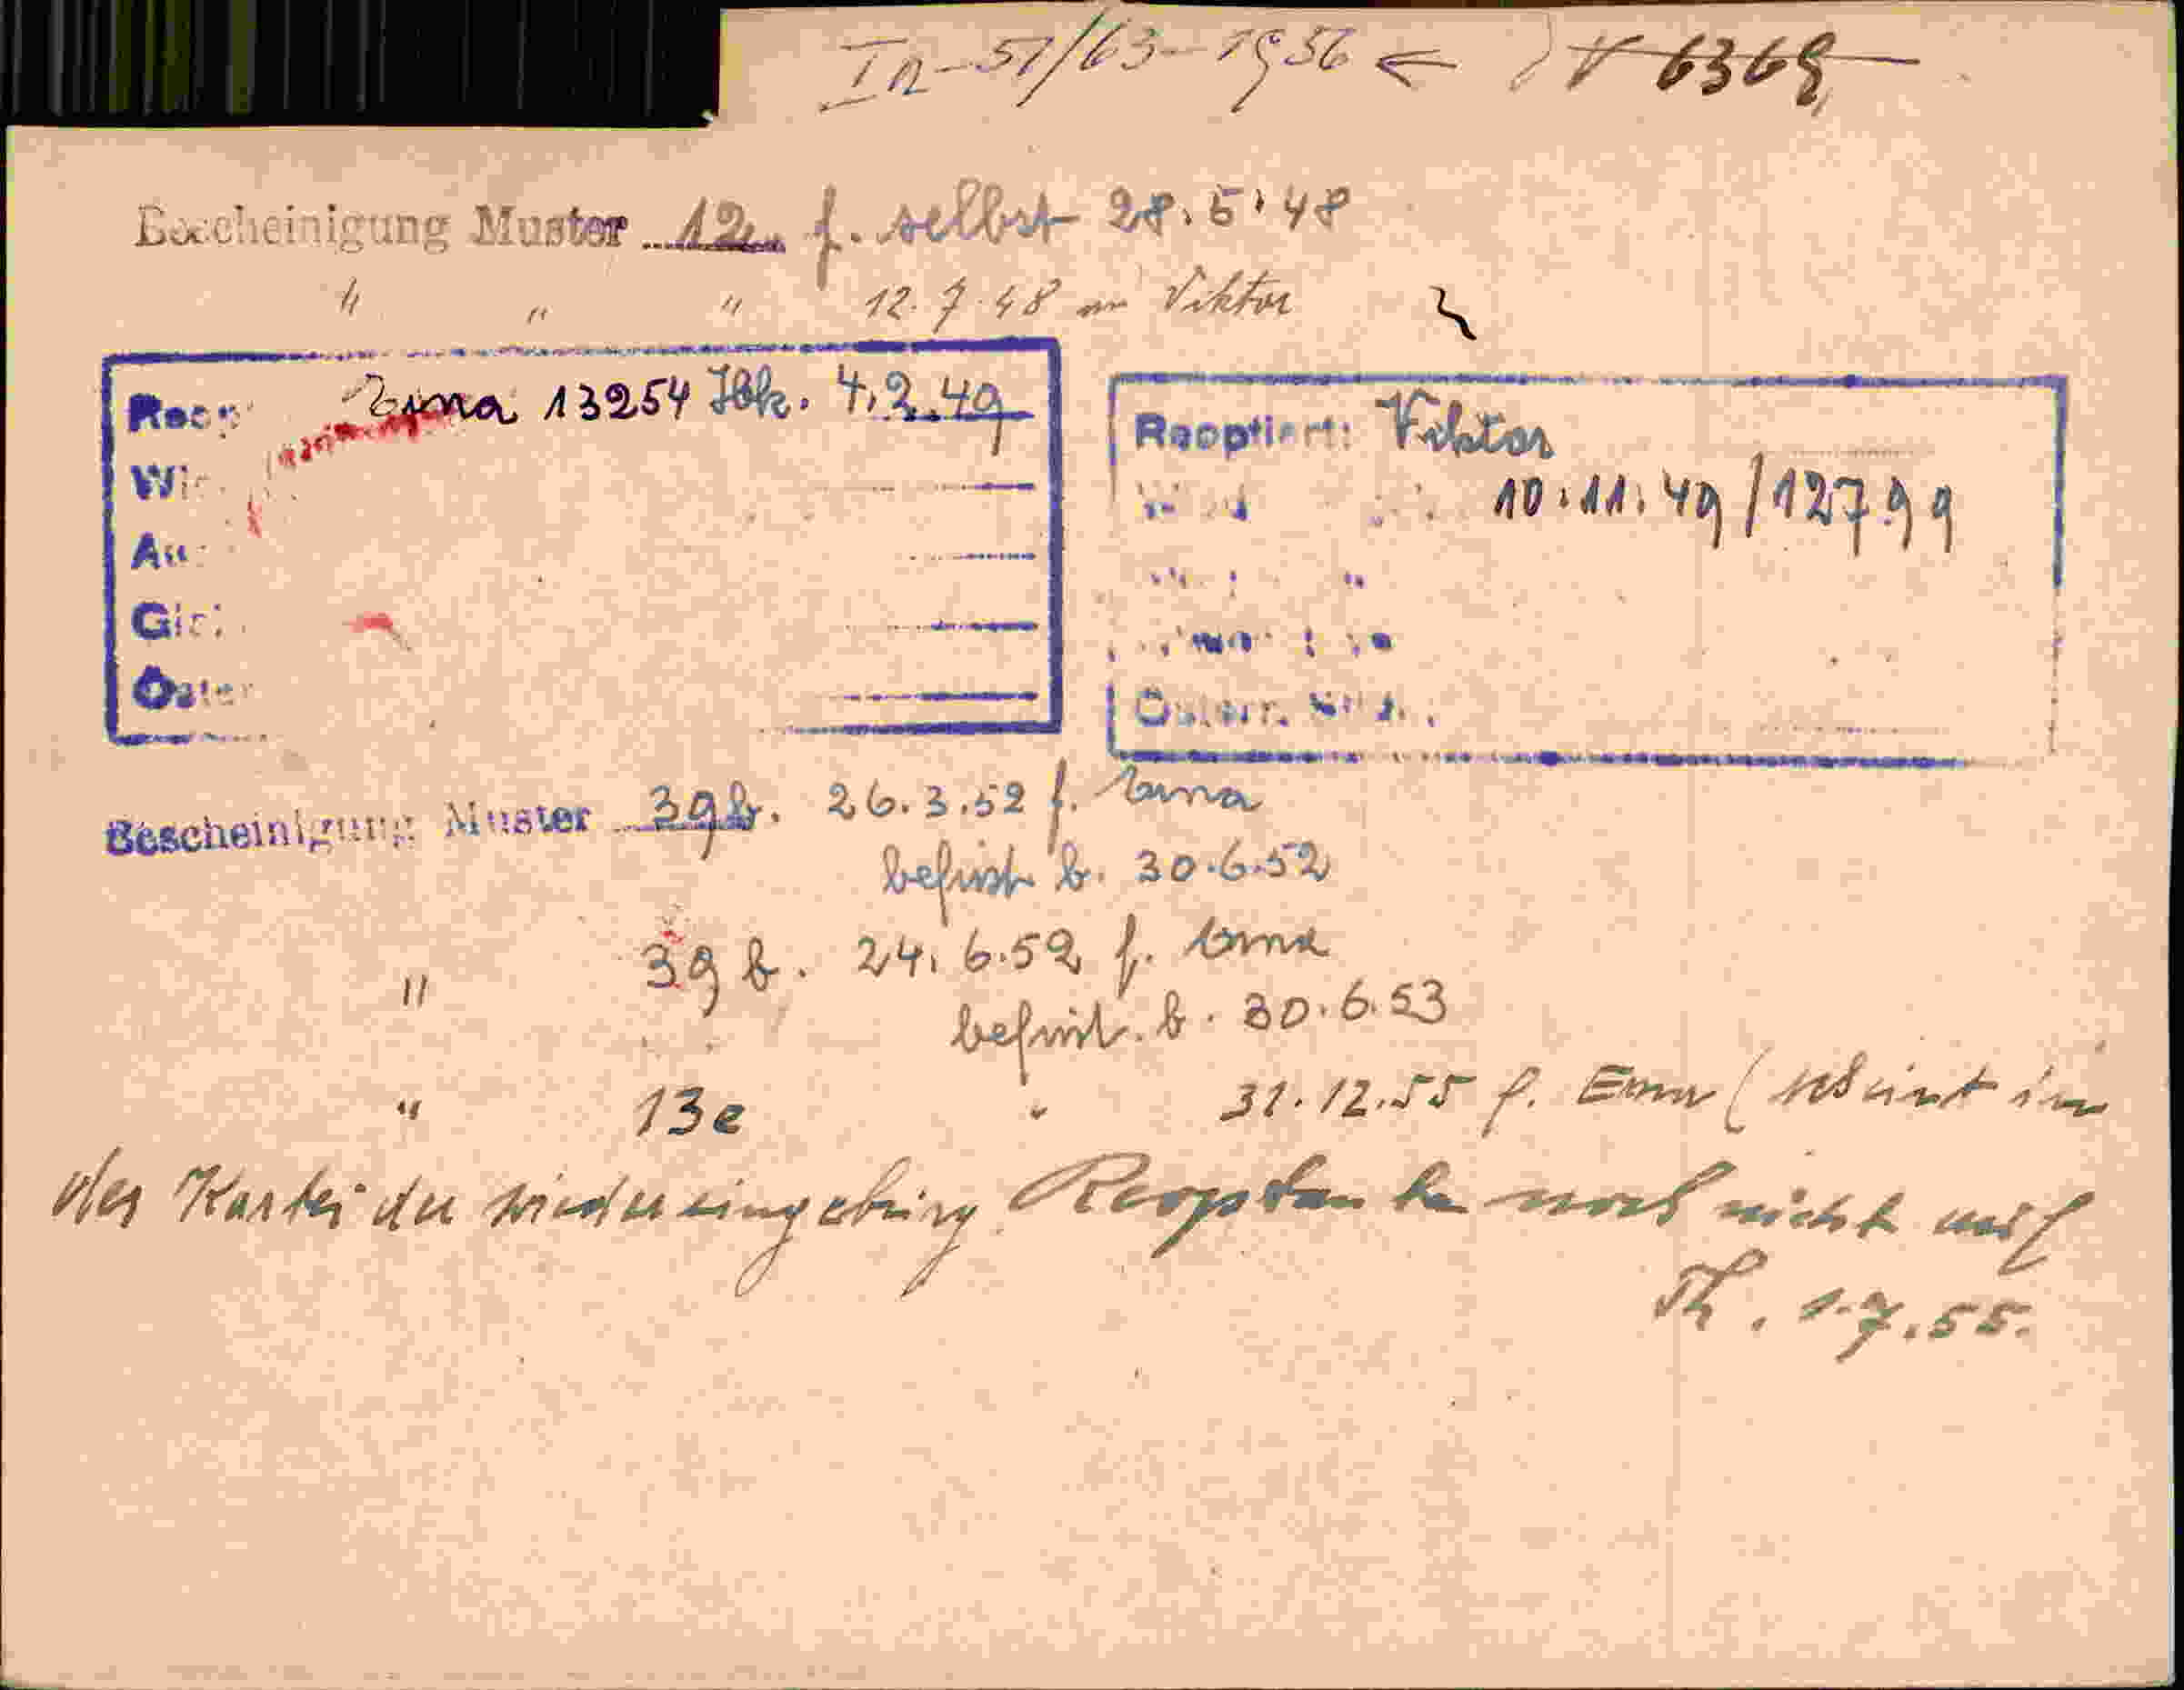 In-51/63-1956 ← V 6369
Bescheinigung Muster 12 f. selbst 28.5.48
" " " 12.7.48 an Viktor
Erna 13254 Ibk. 4.2.49
Reoptiert: Viktor
10.11.49/12799
Bescheinigung Muster 39b. 26.3.52 f. Erna
befrist b. 30.6.52
" 39 b. 24.6.52 f. Erna
befrist. b. 30.6.53
" 13e " 31.12.55 f. Erna (scheint in
der Kartei der wiedereingebürg. Reoptanten noch nicht auf
Th. 1.7.55.